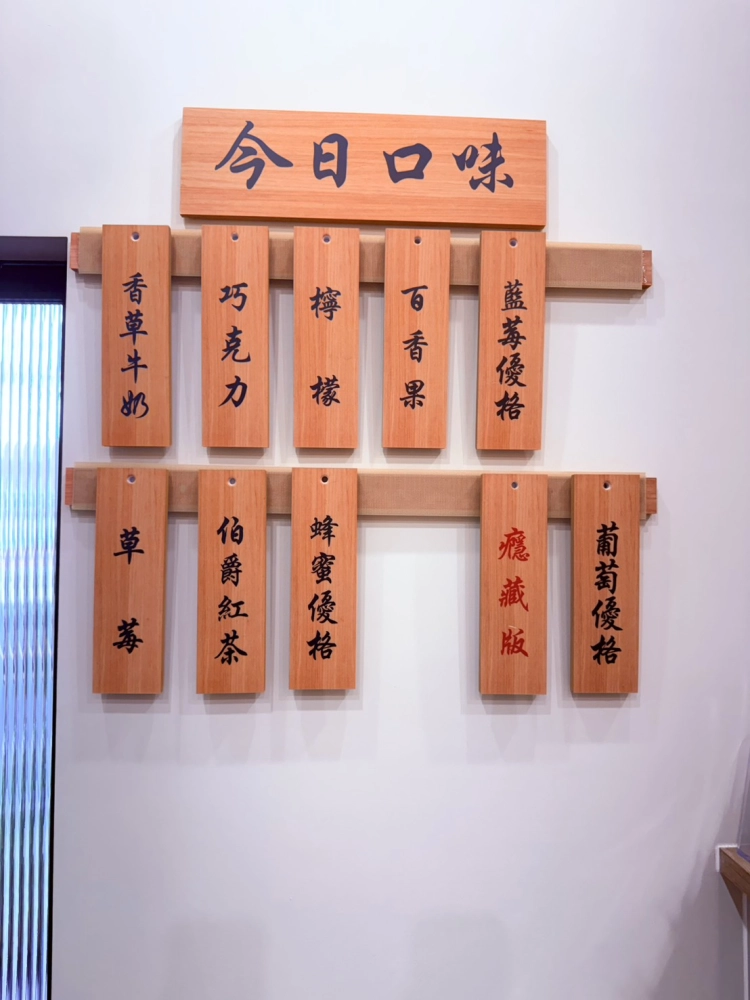 今日口味
香草牛奶
巧克力
檸檬
百香果
藍莓優格
草莓
伯爵紅茶
蜂蜜優格
癮藏版
葡萄優格